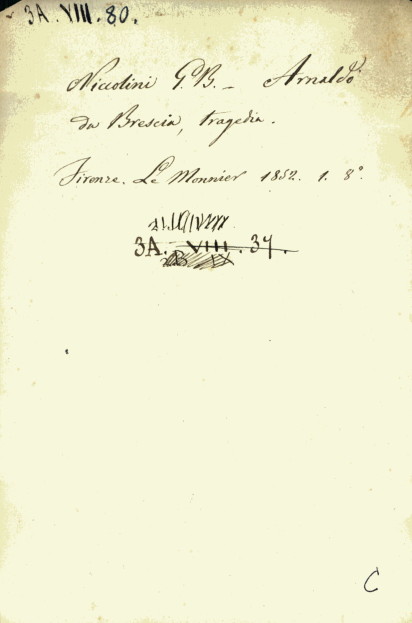 3A.VIII.80.
Niccolini G.B. – Arnaldo
da Brescia, tragedia.
Firenze. Le Monnier 1852. 1. 8°.
3A. VIII. 34.
C